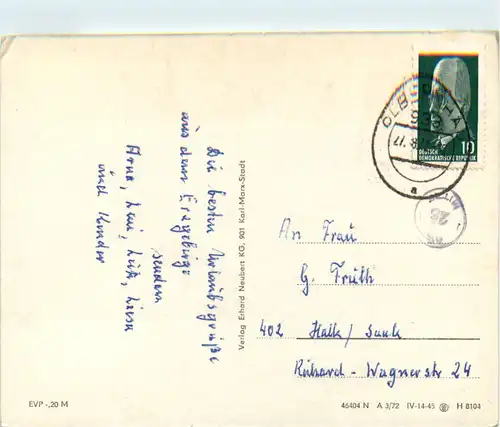 Die besten Urlaubsgrüße
aus dem Erzgebirge
senden
Arno,
und Kinder
Verlag Erhard Neubert KG, 901 Karl-Marx-Stadt
10
DEUTSCHE
DEMOKRATISCHE REPUBLIK
a
26
An Frau
G. Fruth
402 Halle/Saale
Richard-Wagnerstr 24
EVP -,20 M
46404 N A 3/72 IV-14-45 H 8104